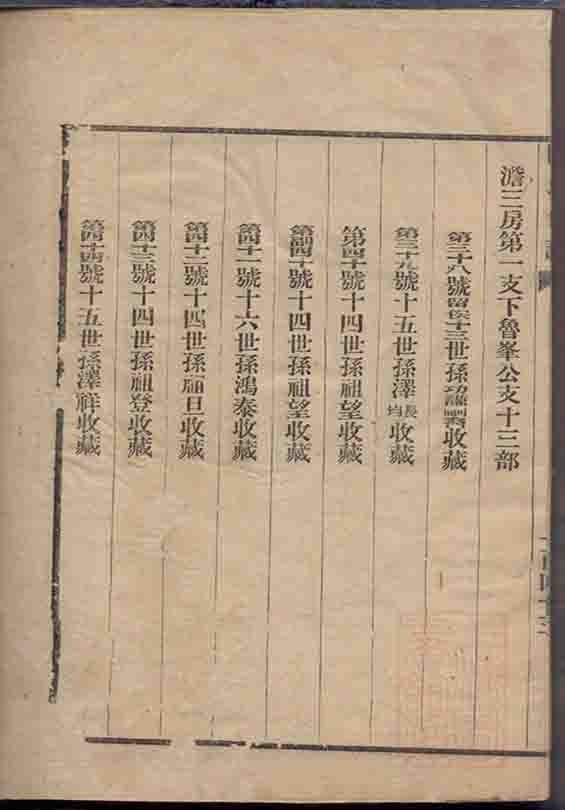 澹三房第一支下魯峯公支十三部
第三十八號留侯十三世孫功謹嗣裔收藏
第三十九號十五世孫澤長均收藏
第四十號十四世孫祖望收藏
第四十號十四世孫祖望收藏
第四十一號十六世孫鴻泰收藏
第四十二號十四世孫祖旦收藏
第四十三號十四世孫祖登收藏
第四十四號十五世孫澤祥收藏